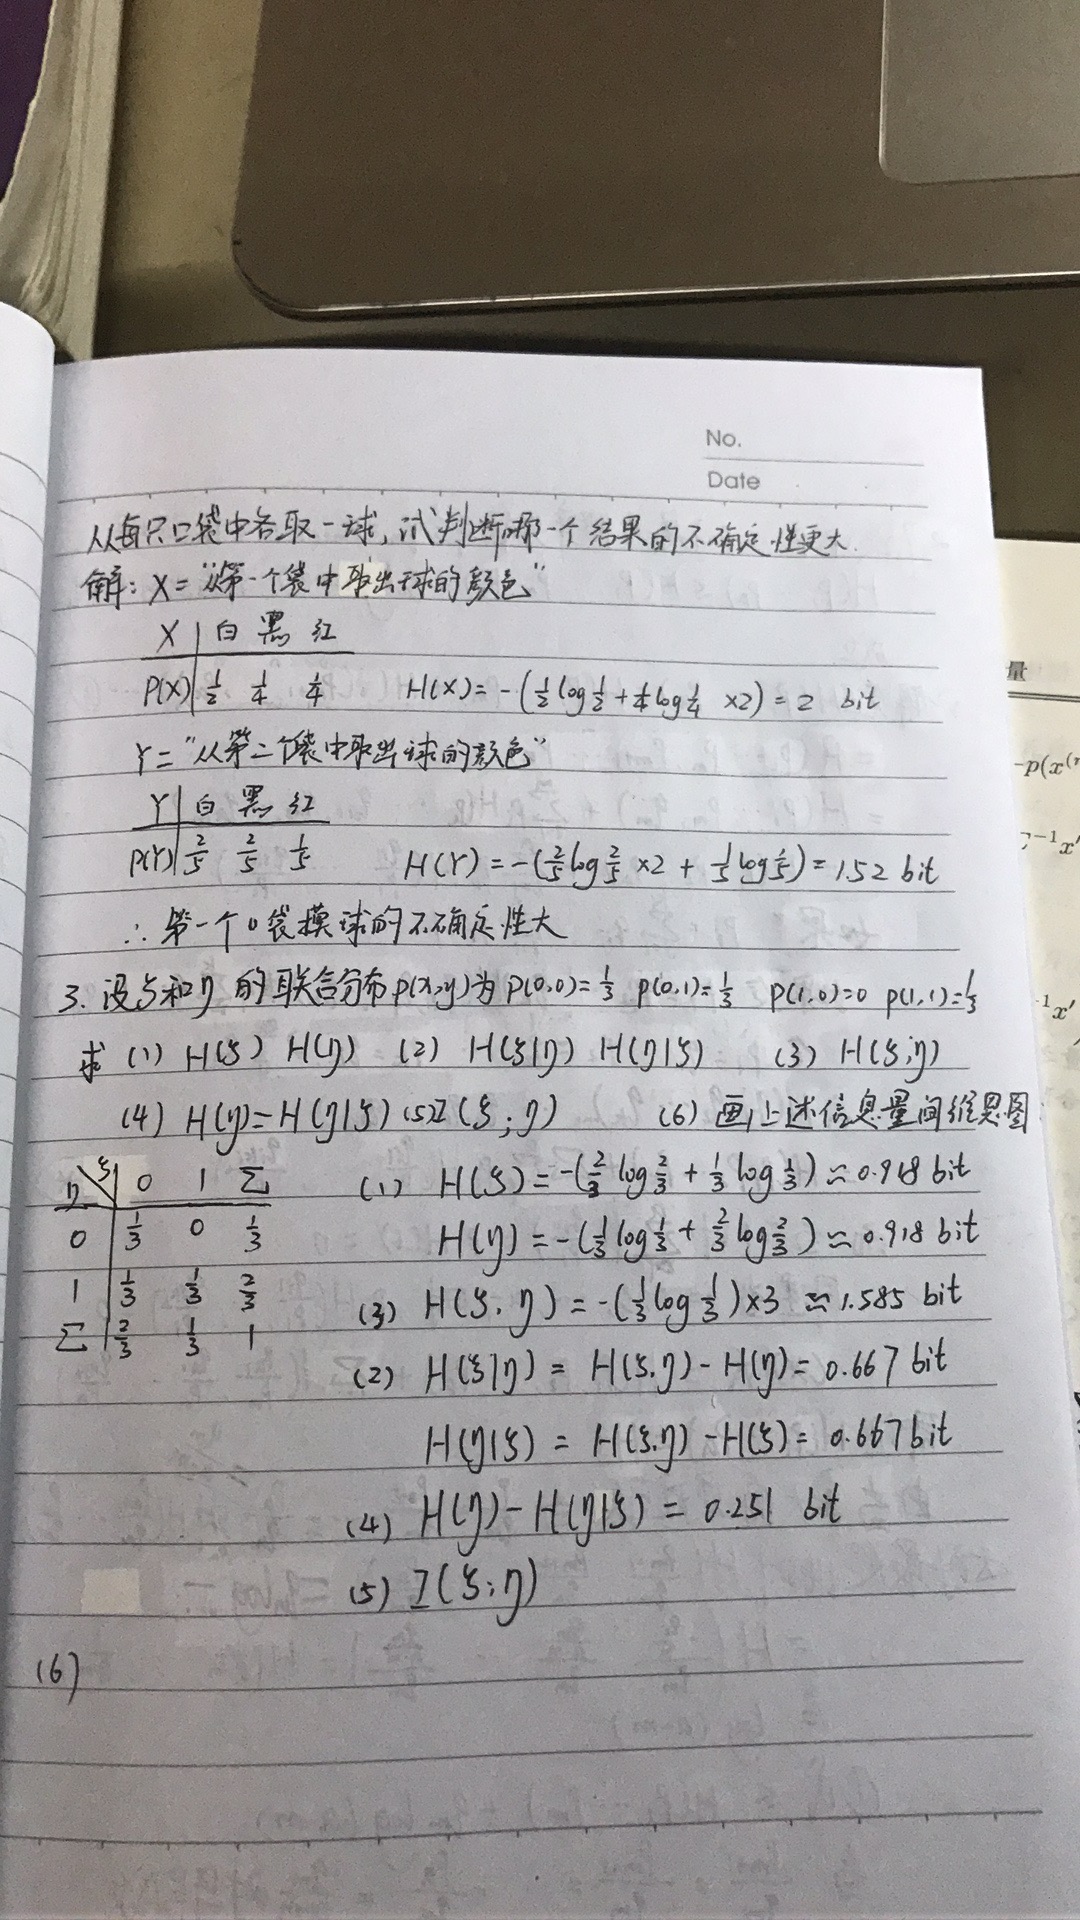 No.
Date
从每只口袋中各取一球,试判断哪一个结果的不确定性更大.
解: X="从第一个袋中取出球的颜色"
X | 白 黑 红
P(X) | 1/2 1/4 1/4 H(X)=-(1/2 log 1/2 + 1/4 log 1/4 ×2)=2 bit
Y="从第二个袋中取出球的颜色"
Y | 白 黑 红
P(Y) | 2/5 2/5 1/5 H(Y)=-(2/5 log 2/5 ×2 + 1/5 log 1/5)=1.52 bit
∴ 第一个口袋摸球的不确定性大
3. 设ξ和η的联合分布p(x,y)为 P(0,0)=1/3 p(0,1)=1/3 P(1,0)=0 p(1,1)=1/3
求 (1) H(ξ) H(η) (2) H(ξ|η) H(η|ξ) (3) H(ξ,η)
(4) H(η)=H(η|ξ) (5)I(ξ;η) (6) 画上述信息量间维恩图
η\ξ | 0 1 Σ
0 | 1/3 0 1/3
1 | 1/3 1/3 2/3
Σ | 2/3 1/3 1
(1) H(ξ)=-(2/3 log 2/3 + 1/3 log 1/3)≈0.918 bit
H(η)=-(1/3 log 1/3 + 2/3 log 2/3)≈0.918 bit
(3) H(ξ,η)=-(1/3 log 1/3)×3 ≈1.585 bit
(2) H(ξ|η)= H(ξ,η)-H(η)=0.667 bit
H(η|ξ)= H(ξ,η)-H(ξ)=0.667 bit
(4) H(η)-H(η|ξ)=0.251 bit
(5) I(ξ;η)
(6)
量
-p(x
-1 x'
-1 x'